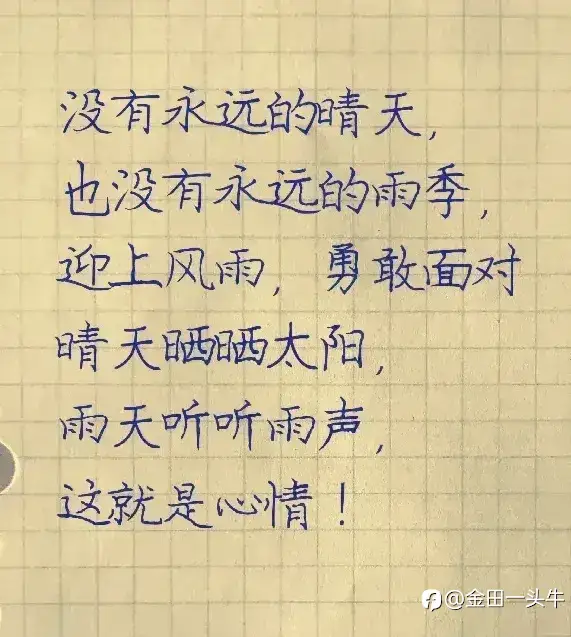 没有永远的晴天,
也没有永远的雨季,
迎上风雨, 勇敢面对
晴天晒晒太阳,
雨天听听雨声,
这就是心情!
@金田一头牛